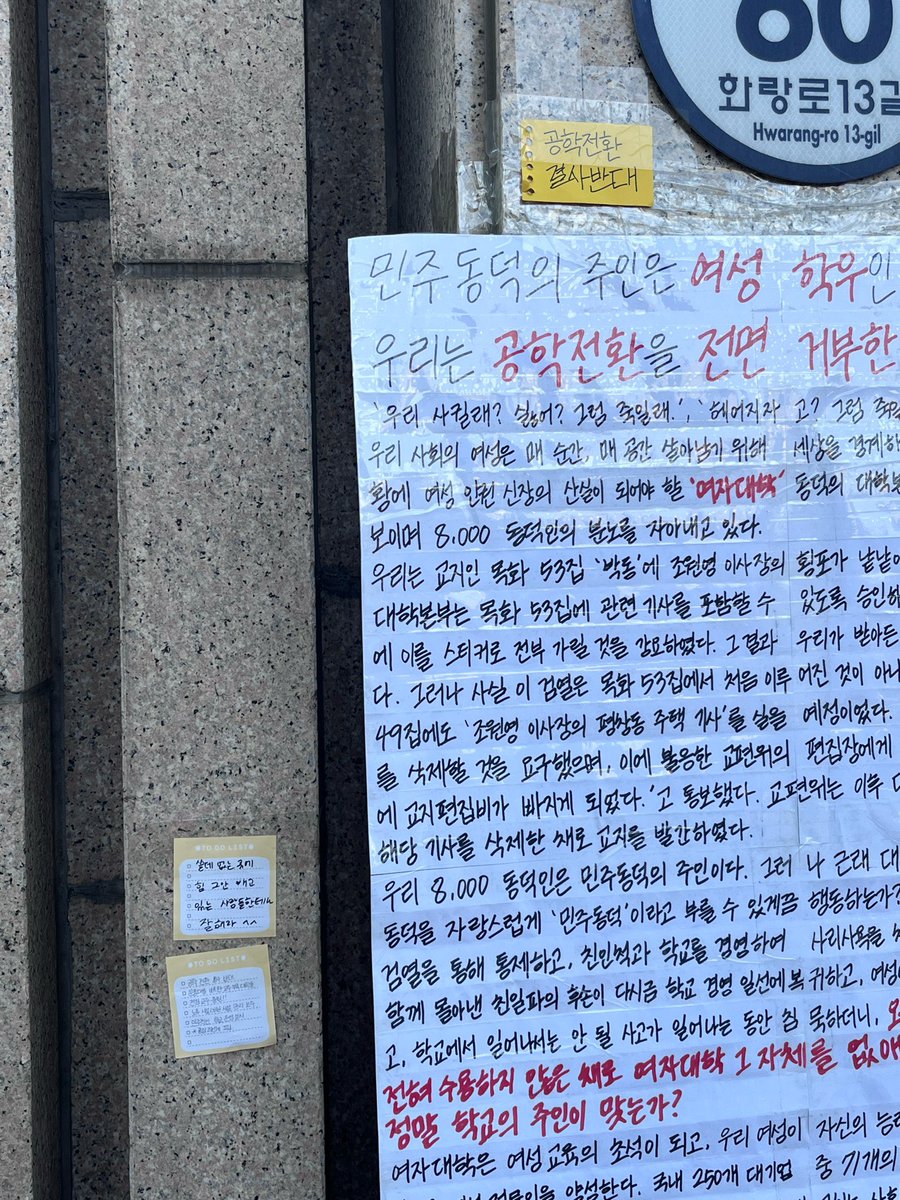 60
화랑로13길
Hwarang-ro 13-gil
공학전환
결사반대
민주동덕의 주인은 여성 학우인
우리는 공학전환을 전면 거부한
'우리 사킬래? 싫어? 그럼 죽일래.', '헤어지자고? 그럼 죽
우리 사회의 여성은 매 순간, 매 공간 살아남기 위해 세상을 경계하
황에 여성 안권 신장의 산실이 되어야 할 '여자대학' 동덕의 대학본
보이며 8,000 동덕인의 분노를 자아내고 있다.
우리는 교지인 목화 53집 '박동'에 조원영 이사장의 횡포가 낱낱이
대학본부는 목화 53집에 관련 기사를 포함할 수 있도록 승인하
에 이를 스티커로 전부 가릴 것을 강요하였다. 그 결과 우리가 받아든
다. 그러나 사실 이 검열은 목화 53집에서 처음 이루어진 것이 아니
49집에도 '조원영 이사장의 평창동 주택 기사'를 실을 예정이었다.
를 삭제할 것을 요구했으며, 이에 불응한 교편위의 편집장에게
에 교지편집비가 빠지게 되었다.'고 통보했다. 교편위는 이후
해당 기사를 삭제한 채로 교지를 발간하였다.
우리 8,000 동덕인은 민주동덕의 주인이다. 그러나 근래 대
동덕을 자랑스럽게 '민주동덕'이라고 부를 수 있게끔 행동하는가?
검열을 통해 통제하고, 친인척과 학교를 경영하며 사리사욕을
함께 몰아낸 친일파의 후손이 다시금 학교 경영 일선에 복귀하고, 여성
고, 학교에서 일어나서는 안 될 사고가 일어나는 동안 침묵하더니, 오
전혀 수용하지 않은 채로 여자대학 그 자체를 없애
정말 학교의 주인이 맞는가?
여자대학은 여성 교육의 초석이 되고, 우리 여성이 자신의 능력
국내 250개 대기업 중 71개의
TO DO LIST
쓸데 없는 곳에
힘 그만 빼고
있는 사람들한테나
잘해라 ^^
TO DO LIST